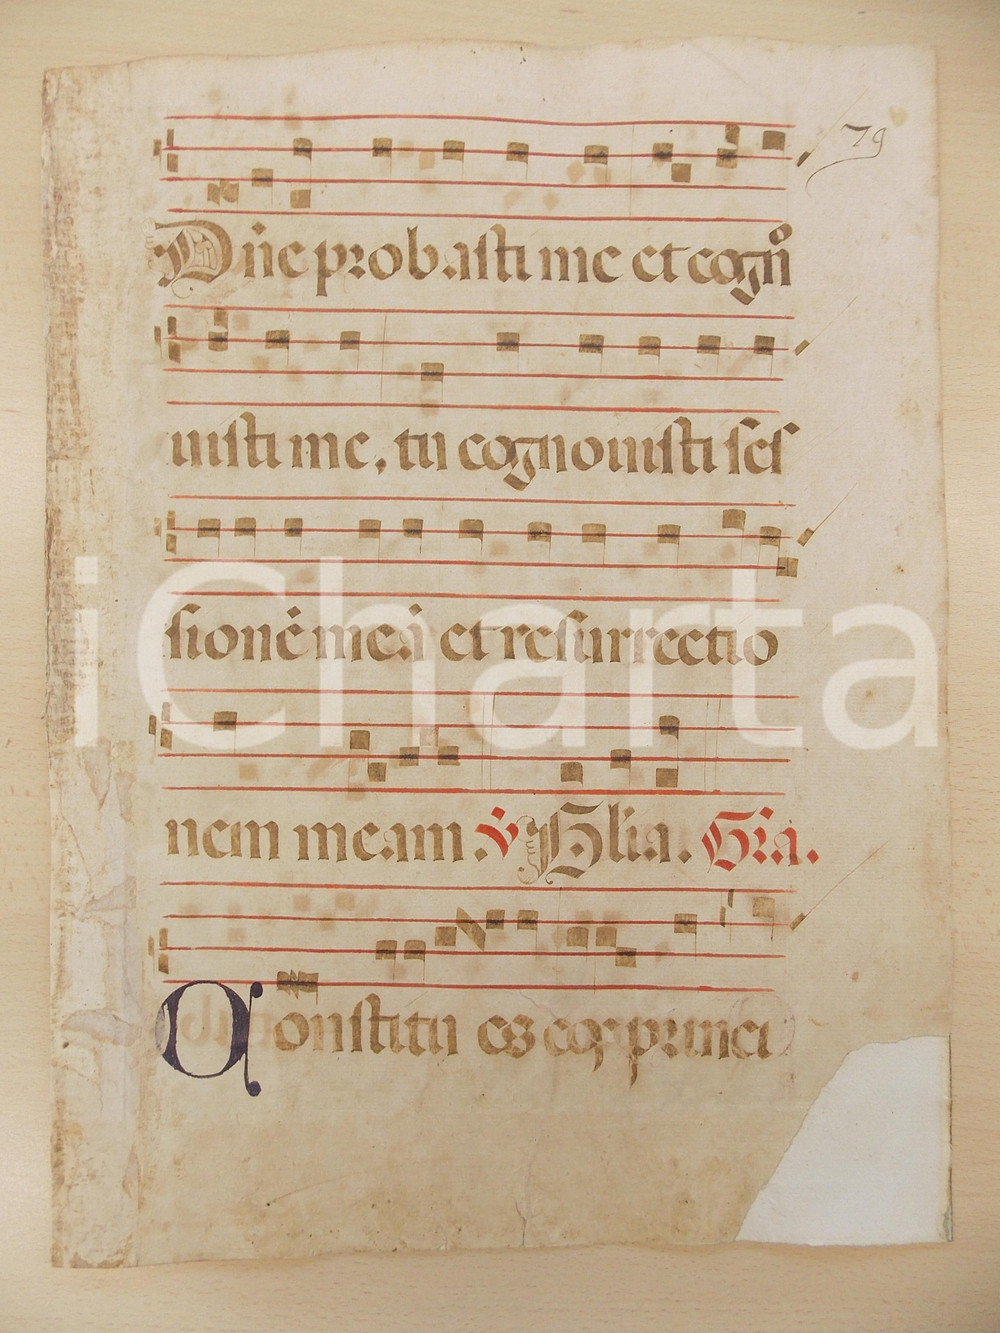 79
Dñe probasti me et cognº
uisti me, tu cognouisti ses
sionē meā et resurrectio
nem meam. ℣ Glia. Gra.
Constitu es eos princi
iCharta